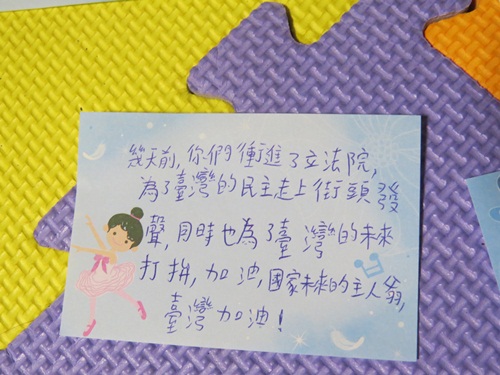 幾天前,你們衝進了立法院,
為了臺灣的民主走上街頭發
聲,同時也為了臺灣的未來
打拚,加油,國家未來的主人翁,
臺灣加油!